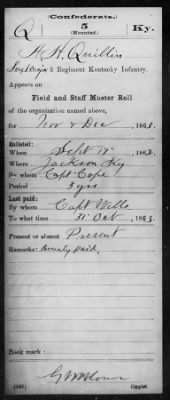 (Confederate.)
Q 5 Ky.
(Mounted.)
H. H. Quillin
5 Regiment Kentucky Infantry.
Appears on
Field and Staff Muster Roll
of the organization named above,
for Nov & Dec, 1863.
Enlisted:
When Sept 17, 1862.
Where Jackson Ky
By whom Capt Cope
Period 3 yrs
Last paid:
By whom Capt Wells
To what time 31 Oct, 1863.
Present or absent Present
Remarks: Bounty paid.
Book mark:
Copyist.